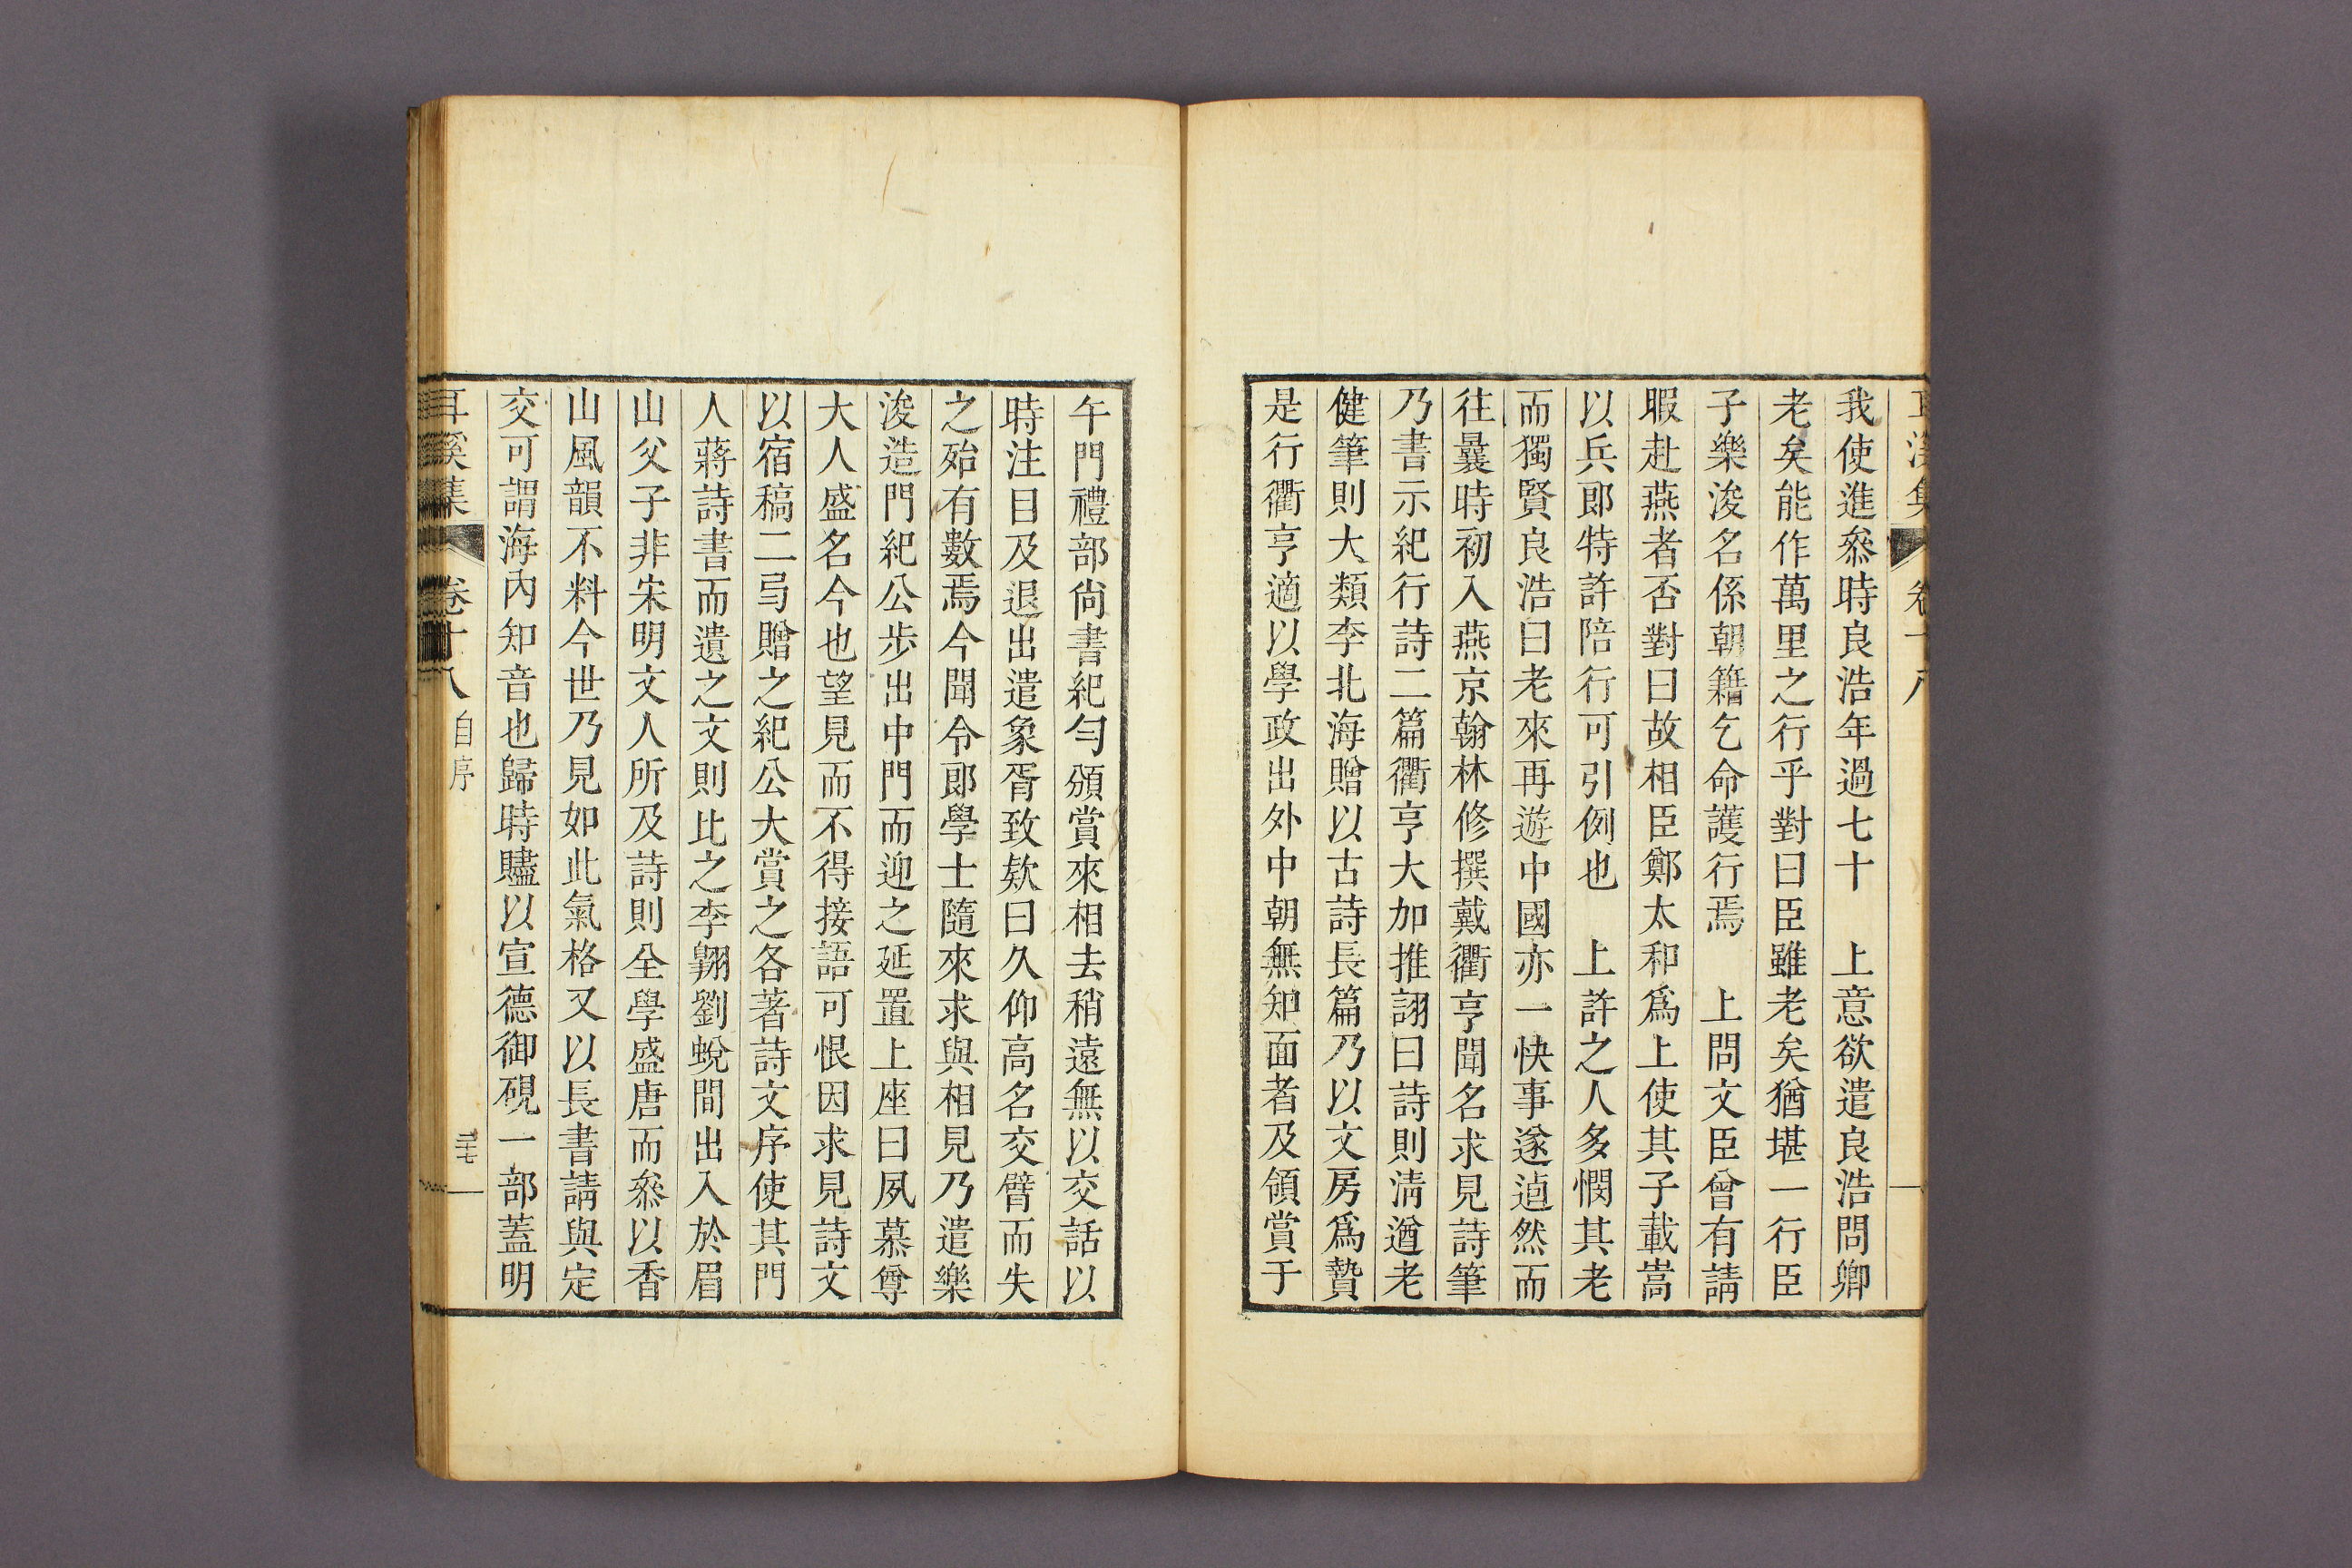 我使進叅時良浩年過七十 上意欲遣良浩問卿
老矣能作萬里之行乎對曰臣雖老矣猶堪一行臣
子樂浚名係朝籍乞命護行焉 上問文臣曾有請
暇赴燕者否對曰故相臣鄭太和爲上使其子載嵩
以兵郎特許陪行可引例也 上許之人多憫其老
而獨賢良浩曰老來再遊中國亦一快事遂逌然而
往曩時初入燕京翰林修撰戴衢亨聞名求見詩筆
乃書示紀行詩二篇衢亨大加推詡曰詩則淸遒老
健筆則大類李北海贈以古詩長篇乃以文房爲贄
是行衢亨適以學政出外中朝無知面者及領賞于
午門禮部尙書紀勻頒賞來相去稍遠無以交話以
時注目及退出遣象胥致欵曰久仰高名交臂而失
之殆有數焉今聞令郎學士隨來求與相見乃遣樂
浚造門紀公步出中門而迎之延置上座曰夙慕尊
大人盛名今也望見而不得接語可恨因求見詩文
以宿稿二弓贈之紀公大賞之各著詩文序使其門
人蔣詩書而遺之文則比之李翶劉蛻間出入於眉
山父子非宋明文人所及詩則全學盛唐而叅以香
山風韻不料今世乃見如此氣格又以長書請與定
交可謂海內知音也歸時贐以宣德御硯一部蓋明
耳溪集 卷十八 自序